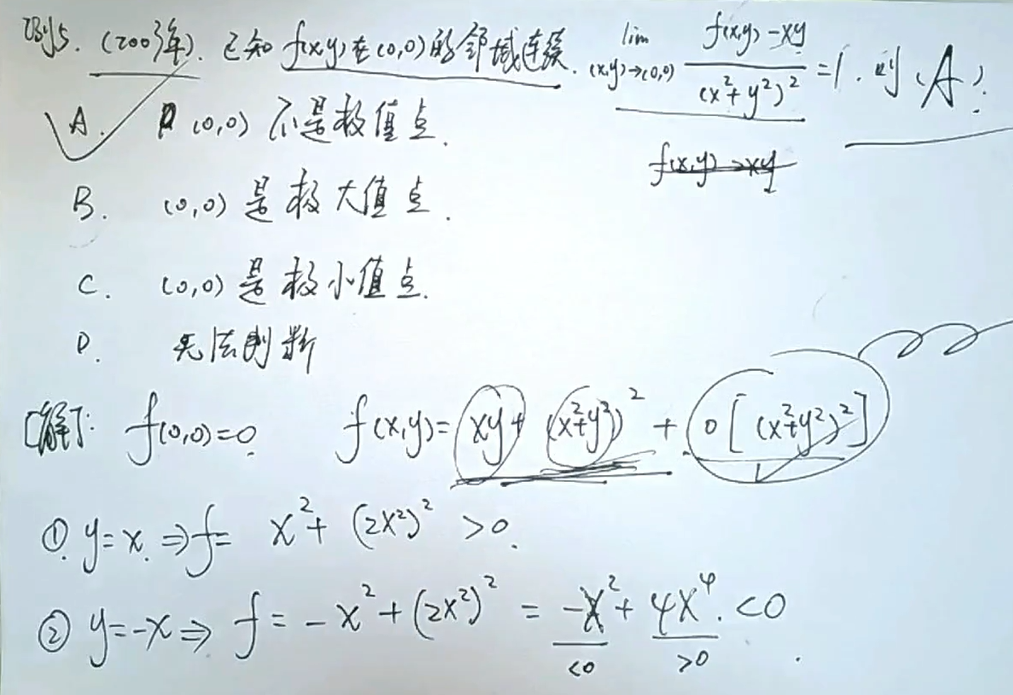 例5. (2003年). 已知 f(x,y)在(0,0)的邻域连续. lim (x,y)→(0,0) f(x,y)-xy / (x²+y²)² =1. 则(A).
A. (0,0) 不是极值点
f(x,y)→xy
B. (0,0) 是极大值点.
C. (0,0) 是极小值点.
D. 无法判断
[解]: f(0,0)=0. f(x,y)= xy+ (x²+y²)² + o[(x²+y²)²]
① y=x. ⇒f= x²+ (2x²)² >0.
② y=-x⇒ f= -x²+(2x²)² = -x²+ 4x⁴. <0.
<0 >0